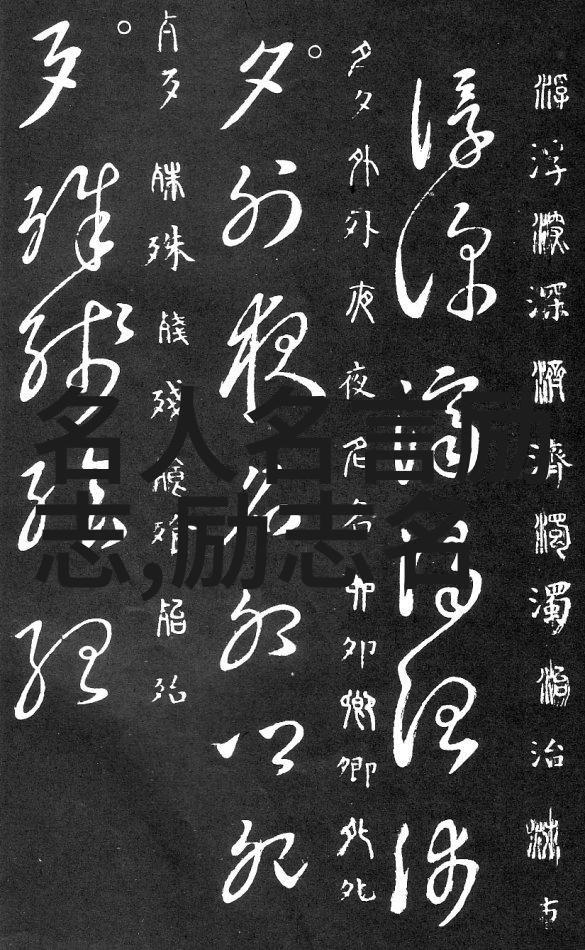 浮浮深深濟濟濁濁治治
浮深濟濁治
夕夕外外夜夜名名卯卯卿卿死死
夕外夜名卯卿死
歹殊殊殘殘
歹殊殘
名人名言励
志,励志名